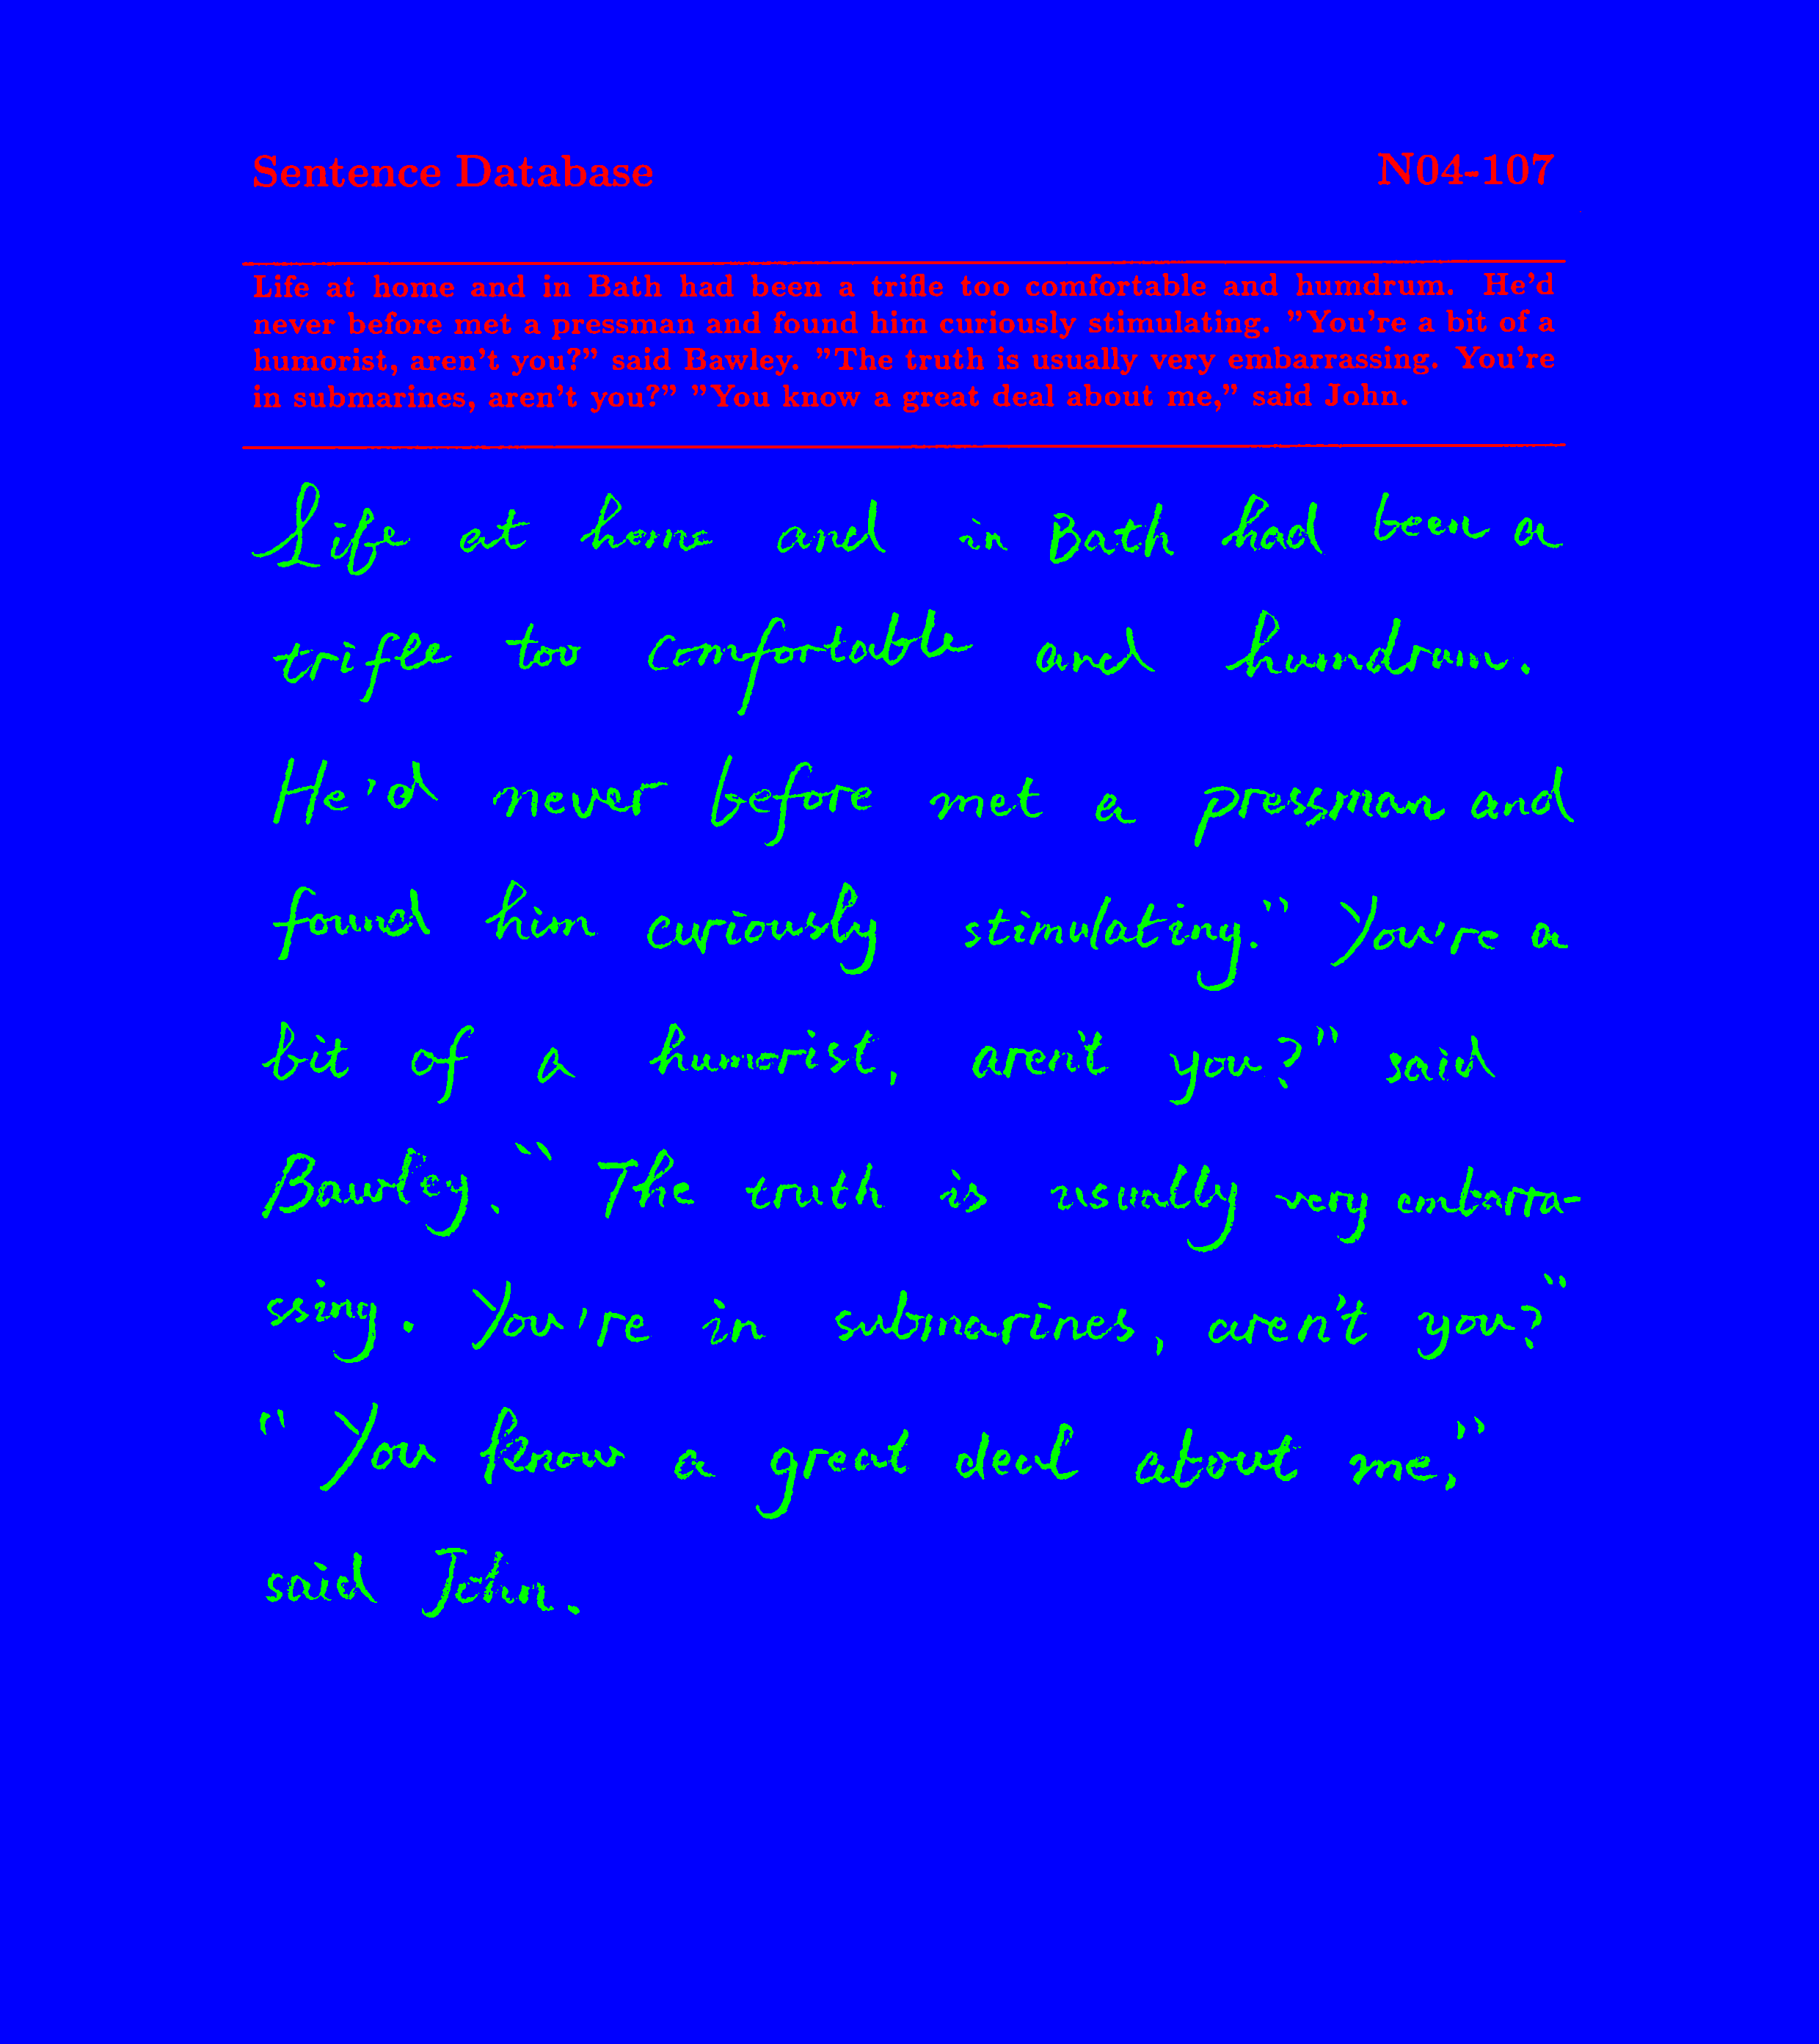 Sentence Database N04-107
Life at home and in Bath had been a trifle too comfortable and humdrum. He'd
never before met a pressman and found him curiously stimulating. "You're a bit of a
humorist, aren't you?" said Bawley. "The truth is usually very embarrassing. You're
in submarines, aren't you?" "You know a great deal about me," said John.
Life at home and in Bath had been a
trifle too comfortable and humdrum.
He'd never before met a pressman and
found him curiously stimulating." You're a
bit of a humorist, aren't you?" said
Bawley. " The truth is usually very embarra-
ssing. You're in submarines, aren't you?"
" You know a great deal about me,"
said John.